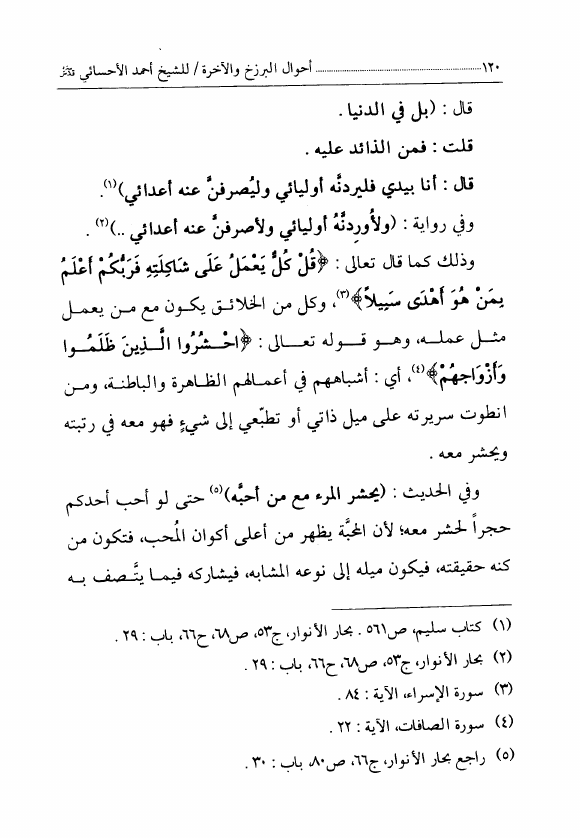 ١٢٠ ........................ أحوال البرزخ والآخرة / للشيخ أحمد الأحسائي
قال : (بل في الدنيا .
قلت : فمن الذائد عليه .
قال : أنا بيدي فليردنَّه أوليائي وليُصرفنَّ عنه أعدائي)(١).
وفي رواية : (ولأُوردِنَّهُ أوليائي ولأصرفنَّ عنه أعدائي ..)(٢) .
وذلك كما قال تعالى : ﴿قُلْ كُلٌّ يَعْمَلُ عَلَى شَاكِلَتِهِ فَرَبُّكُمْ أَعْلَمُ
بِمَنْ هُوَ أَهْدَى سَبِيلاً﴾(٣)، وكل من الخلائق يكون مع من يعمل
مثل عمله، وهو قوله تعالى : ﴿احْشُرُوا الَّذِينَ ظَلَمُوا
وَأَزْوَاجَهُمْ﴾(٤)، أي : أشباههم في أعمالهم الظاهرة والباطنة، ومن
انطوت سريرته على ميل ذاتي أو تطبّعي إلى شيءٍ فهو معه في رتبته
ويحشر معه .
وفي الحديث : (يحشر المرء مع من أحبَّه)(٥) حتى لو أحب أحدكم
حجراً لحشر معه؛ لأن المحبَّة يظهر من أعلى أكوان المُحب، فتكون من
كنه حقيقته، فيكون ميله إلى نوعه المشابه، فيشاركه فيما يتَّصف به
(١) كتاب سليم، ص٥٦١ . بحار الأنوار، ج٥٣، ص٦٨، ح٦٦، باب : ٢٩ .
(٢) بحار الأنوار، ج٥٣، ص٦٨، ح٦٦، باب : ٢٩ .
(٣) سورة الإسراء، الآية : ٨٤ .
(٤) سورة الصافات، الآية : ٢٢ .
(٥) راجع بحار الأنوار، ج٦٦، ص٨٠، باب : ٣٠ .